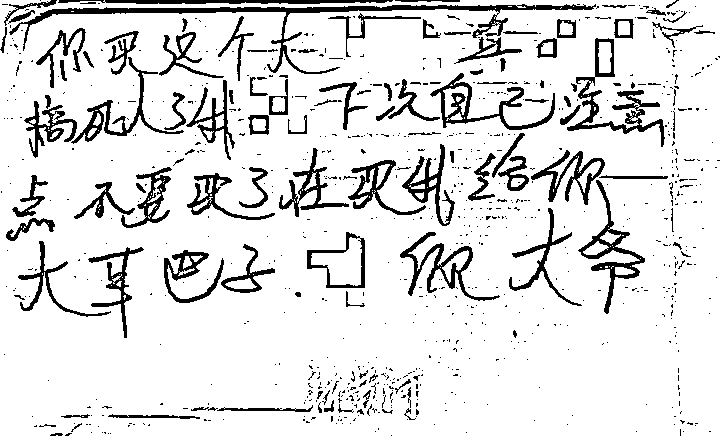 你买这个大 真
搞死人了我 下次自己注意
点不要买了在买我给你
大耳巴子. 你大爷
新黄河